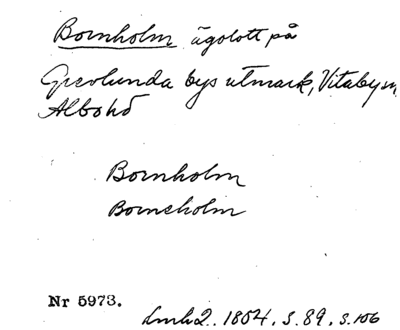 Bornholm ägolott på
Grevlunda bys utmark, Vitaby sn
Albo hd
Bornholm
Borneholm
Nr 5973.
Lmh 2. 1804. S. 89, S. 106